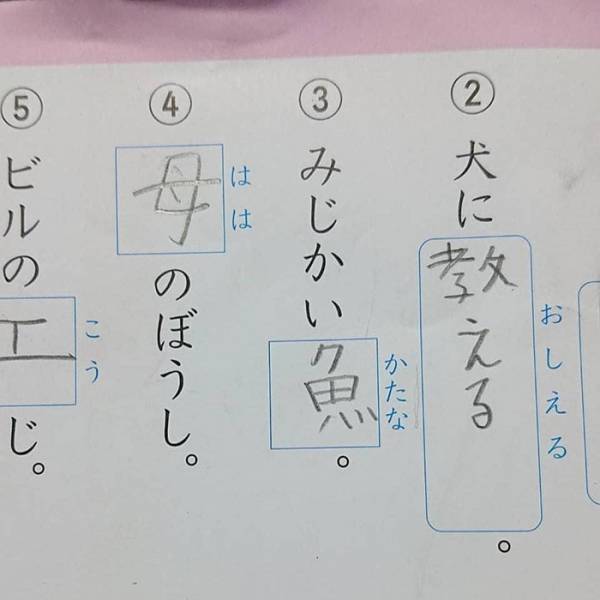 ②犬に教える。
おしえる
③みじかい魚。
かたな
④母のぼうし。
はは
⑤ビルの工じ。
こう